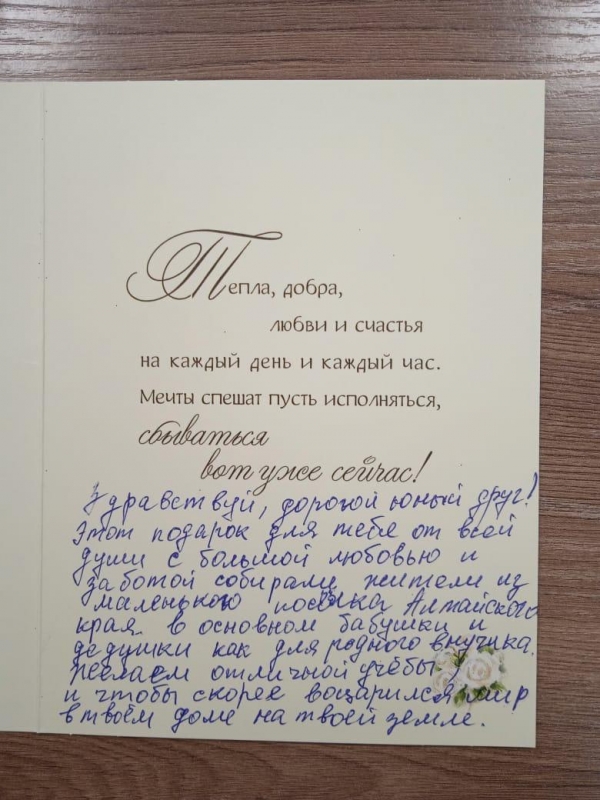 Тепла, добра,
любви и счастья
на каждый день и каждый час.
Мечты спешат пусть исполняться,
сбываться
вот уже сейчас!
Здравствуй, дорогой юный друг!
Этот подарок для тебя от всей
души с большой любовью и
заботой собирали жители из
маленького посёлка Алтайского
края в основном бабушки и
дедушки как для родного внучика.
Желаем отличной учёбы
и чтобы скорее воцарился мир
в твоём доме на твоей земле.